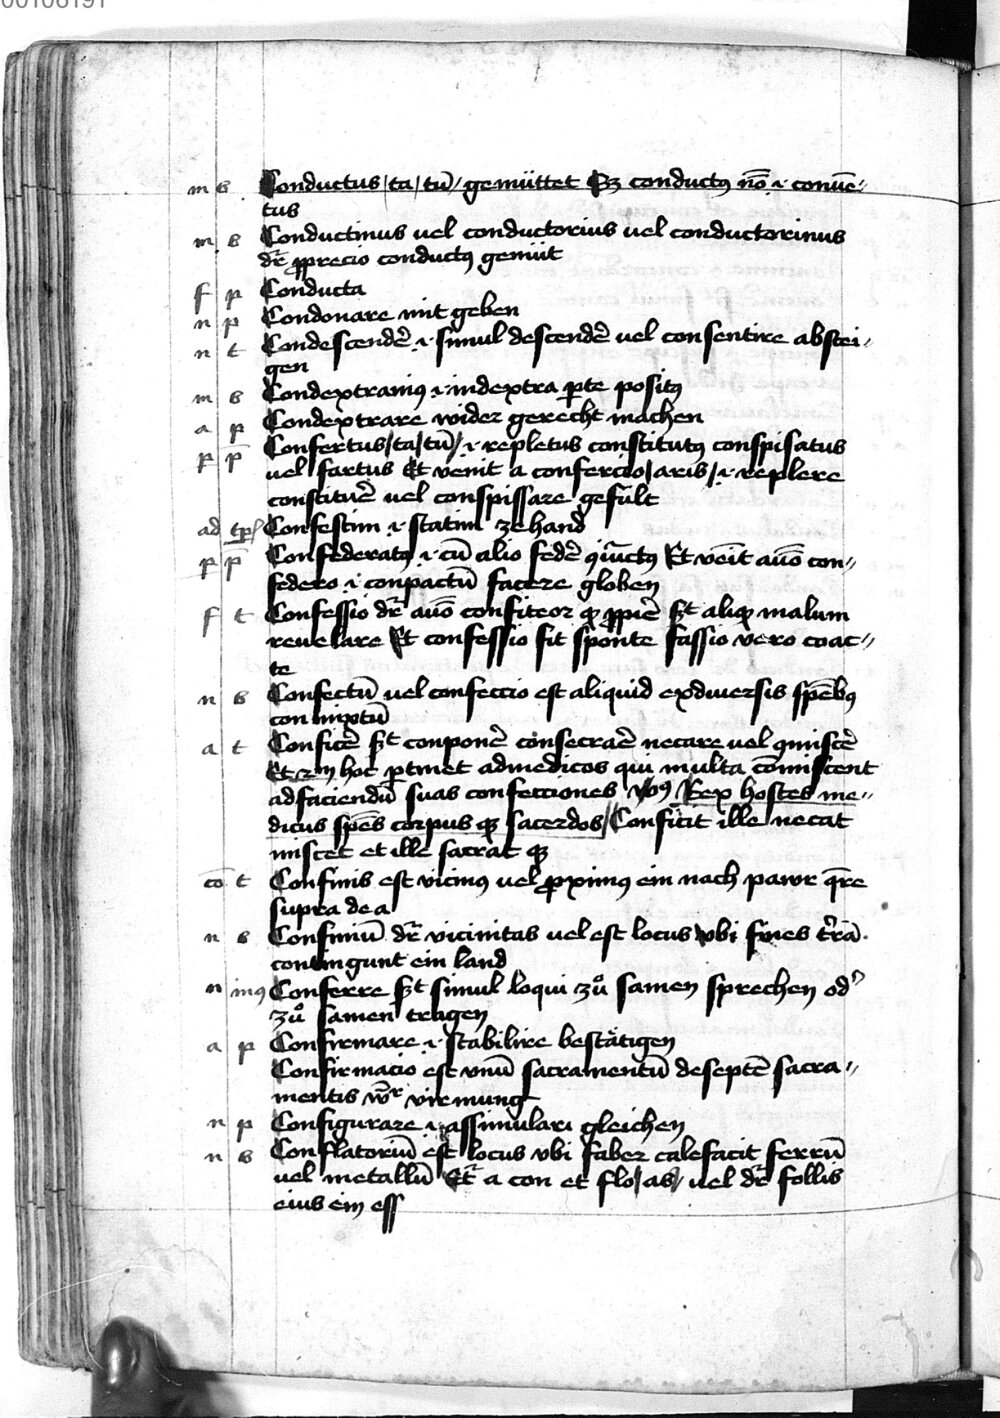 00106191
m b Conductus / ta / tū / gemüttet Sꝫ conductꝯ nō ·i· conūe〃
tus
m b Conductinus uel conductorius uel conductorinus
dr̄ ꝓprecio conductꝯ gemüt
f p Conducta
n p Condonare mit geben
n t Condescendē ·i· simul descendē uel consentire abstei〃
gen
m b Condextranꝯ ·i· indextra ꝑte positꝯ
a p Condextrare wider gerecht machen
p p̄ Confertus / ta / tū / ·i· repletus constitutꝯ conspisatus
uel fartus Et venit a confercio / aris / ·i· replere
constituē uel conspissare gefült
ad tꝑl Confestim ·i· statim zehand
p p̄ Confederatꝯ ·i· cū alio fedē Et venit
federo ·i· conpactū facere globen
f t Confessio dr̄ confiteor malum
reuelare Et confessio fit sponte fassio vero coac〃
te
n b Confectū uel confeccio est aliquid exdiuersis spēbꝯ
con mixtū
a t Conficē conponē consecraē necare uel
Et hoc ꝑtinet admedicos qui multa cōmiscent
adfaciendū suas confectiones Rex hostes me〃
dicus spēs corpus sacerdos / Conficit ille necat
miscet et ille sacrat
cō t Confinis est vicinꝯ uel ꝓximꝯ ein nach pawr q̄re
supra de a
n b Confiniū dr̄ vicinitas uel est locus vbi fines
contingunt ein land
n Conferre simul loqui zů samen sprechen od
zů samen tragen
a p Confirmare ·i· stabilire bestätigen
Confirmacio est vnū sacramentū deseptē sacra〃
mentis virmung
n p Configurare ·i· assimulari gleichen
n b Conflatoriū est locus vbi faber calefacit ferrū
uel metallū a con et flo / as / uel dr̄ follis
eius ein ess